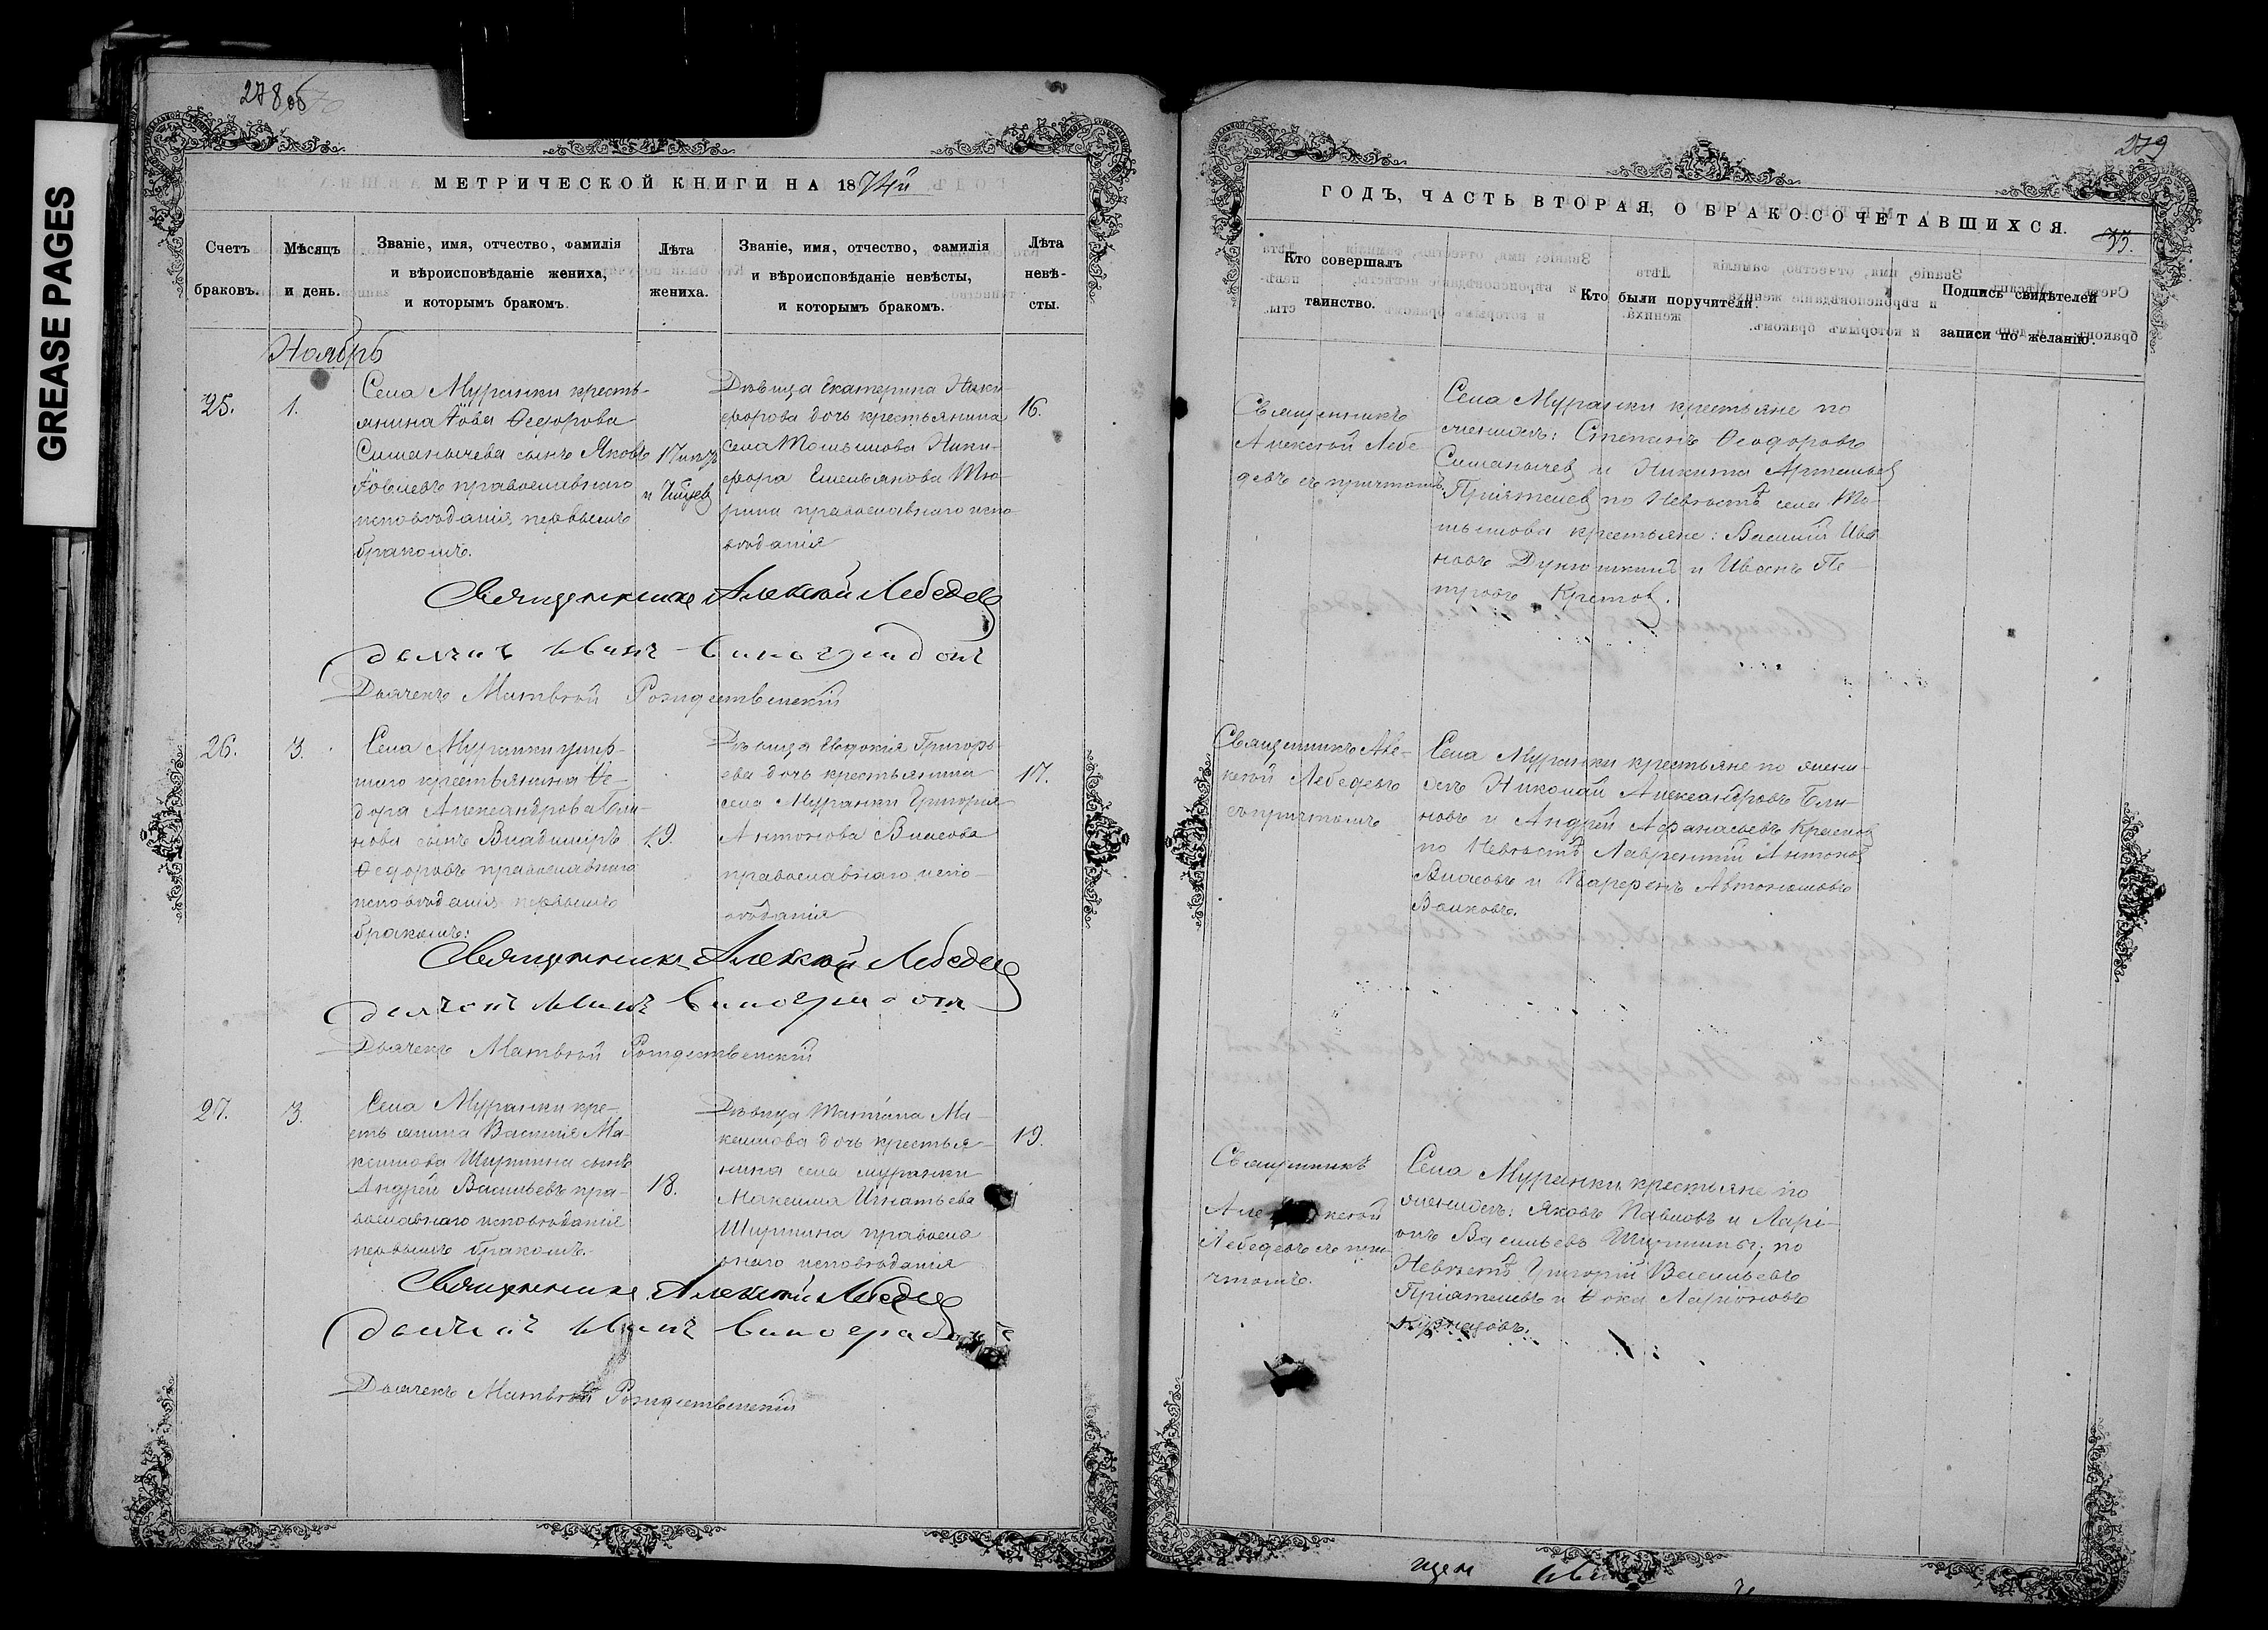 GREASE PAGES
278 об
МЕТРИЧЕСКОЙ КНИГИ НА 1874й
Счетъ браковъ.
Мѣсяцъ и день.
Званіе, имя, отчество, фамилія
и вѣроисповѣданіе жениха,
и которымъ бракомъ.
Лѣта
жениха.
Званіе, имя, отчество, фамилія
и вѣроисповѣданіе невѣсты,
и которымъ бракомъ.
Лѣта
невѣ-
сты.
Ноябрь
25.
1.
Села Муранки кресть-
янина Іова Ѳедорова
сынъ Яковъ
Іовлевъ православнаго
исповѣданія первымъ
бракомъ.
17 лѣтъ
и
Дѣвица Екатерина Ники-
форова дочь крестьянина
села Ники-
фора Емельянова Тю-
рина православнаго испо-
вѣданія
16.
Священникъ Алексѣй Лебедев
Дьячекъ Матвѣй Рождественскій
26.
3.
Села Муранки умер-
шаго крестьянина Ѳе-
дора Александрова Бли-
нова сынъ Владиміръ
Ѳедоровъ православнаго
исповѣданія первымъ
бракомъ:
19.
Дѣвица Евдокія Григорь-
ева дочь крестьянина
села Муранки Григорія
Антонова Власова
православнаго испо-
вѣданія
17.
Священникъ Алексѣй Лебедев
Дьячекъ Матвѣй Рождественскій
27.
3.
Села Муранки кре-
стьянина Василія Ма-
ксимова Ширшина сынъ
Андрей Васильевъ пра-
вославнаго исповѣданія
первымъ бракомъ.
18.
Дѣвица Татіана Ма-
ксимова дочь крестья-
нина села Муранки
Максима Игнатьева
Ширшина правосла
внаго исповѣданія
19.
Священникъ Алексѣй Лебедев
Дьячекъ Матвѣй Рождественскій
279
ГОДЪ, ЧАСТЬ ВТОРАЯ, О БРАКОСОЧЕТАВШИХСЯ.
Кто совершалъ
таинство.
Кто были поручители.
Подпись свидѣтелей
записи по желанію.
Священникъ
Алексѣй Лебе-
девъ съ причтомъ.
Села Муранки крестьяне по
женихѣ: Степанъ Ѳеодоровъ
и Никита Артемьев
Пріятелев по Невѣстѣ села
крестьяне: Василій Ива
новъ и Иванъ Пе-
тровъ
Священникъ Але-
ксѣй Лебедевъ
съ причтомъ
Села Муранки крестьяне по жени-
хѣ Николай Александровъ Бли-
новъ и Андрей Афанасьевъ Краснов
по Невѣстѣ Лаврентій Антонов
Власовъ и Парфенъ Автономовъ
Волковъ.
Священникъ
Алексѣй
Лебедевъ съ при-
чтомъ.
Села Муранки крестьяне по
женихѣ: Яковъ Павловъ и Ларі-
онъ Васильевъ Ширшины; по
Невѣстѣ Григорій Васильевъ
Пріятелевъ и Ѳока Ларіоновъ